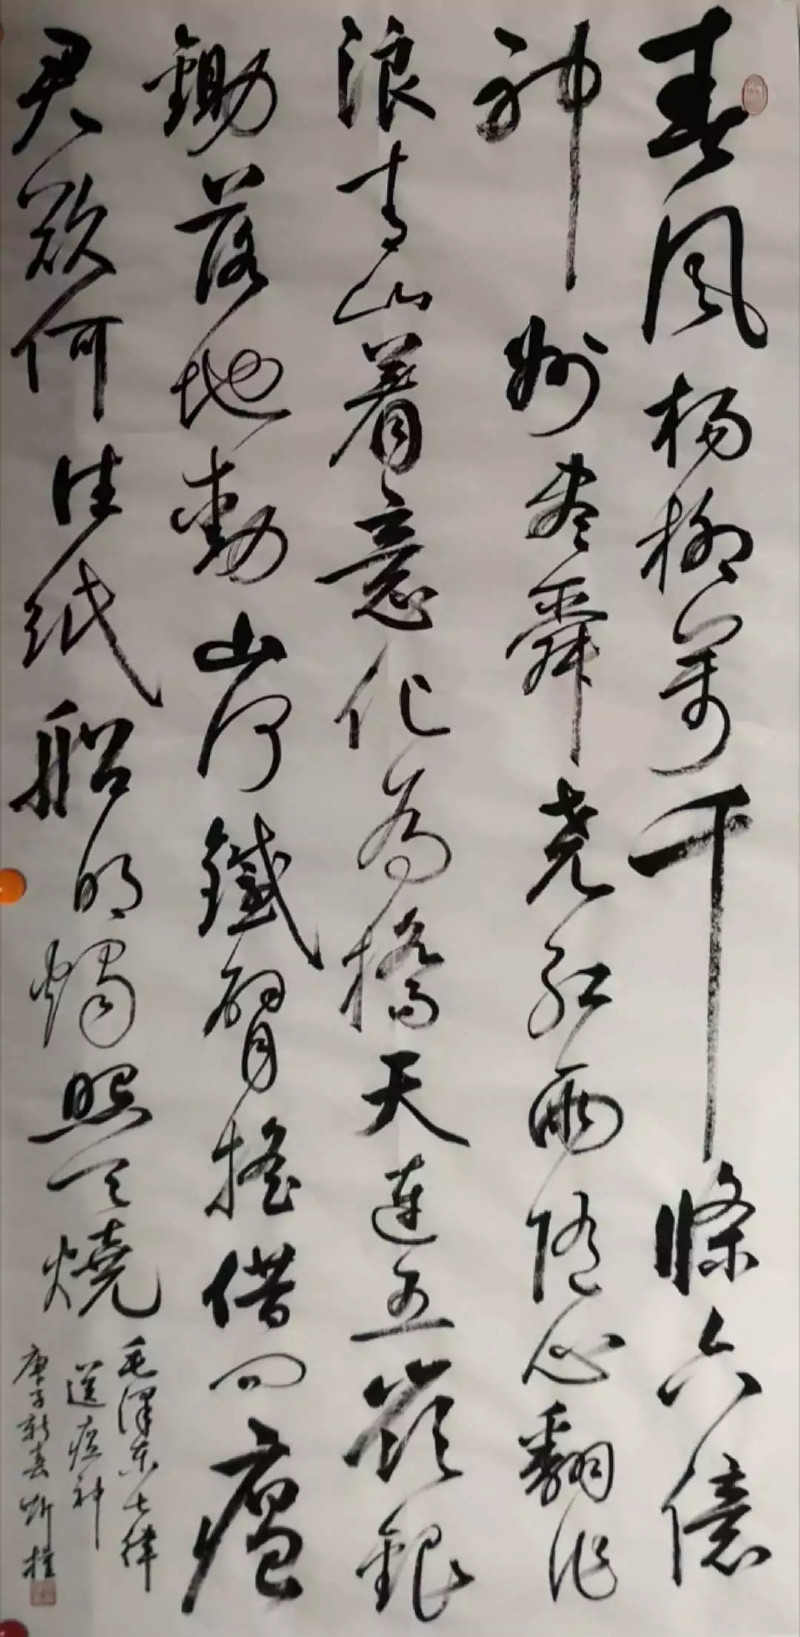 春風楊柳萬千條六億
神州盡舜堯紅雨隨心翻作
浪青山着意化為橋天連五嶺銀
鋤落地動山河鐵臂搖借問瘟
君欲何往紙船明燭照天燒
毛澤東七律
送瘟神
庚子新春